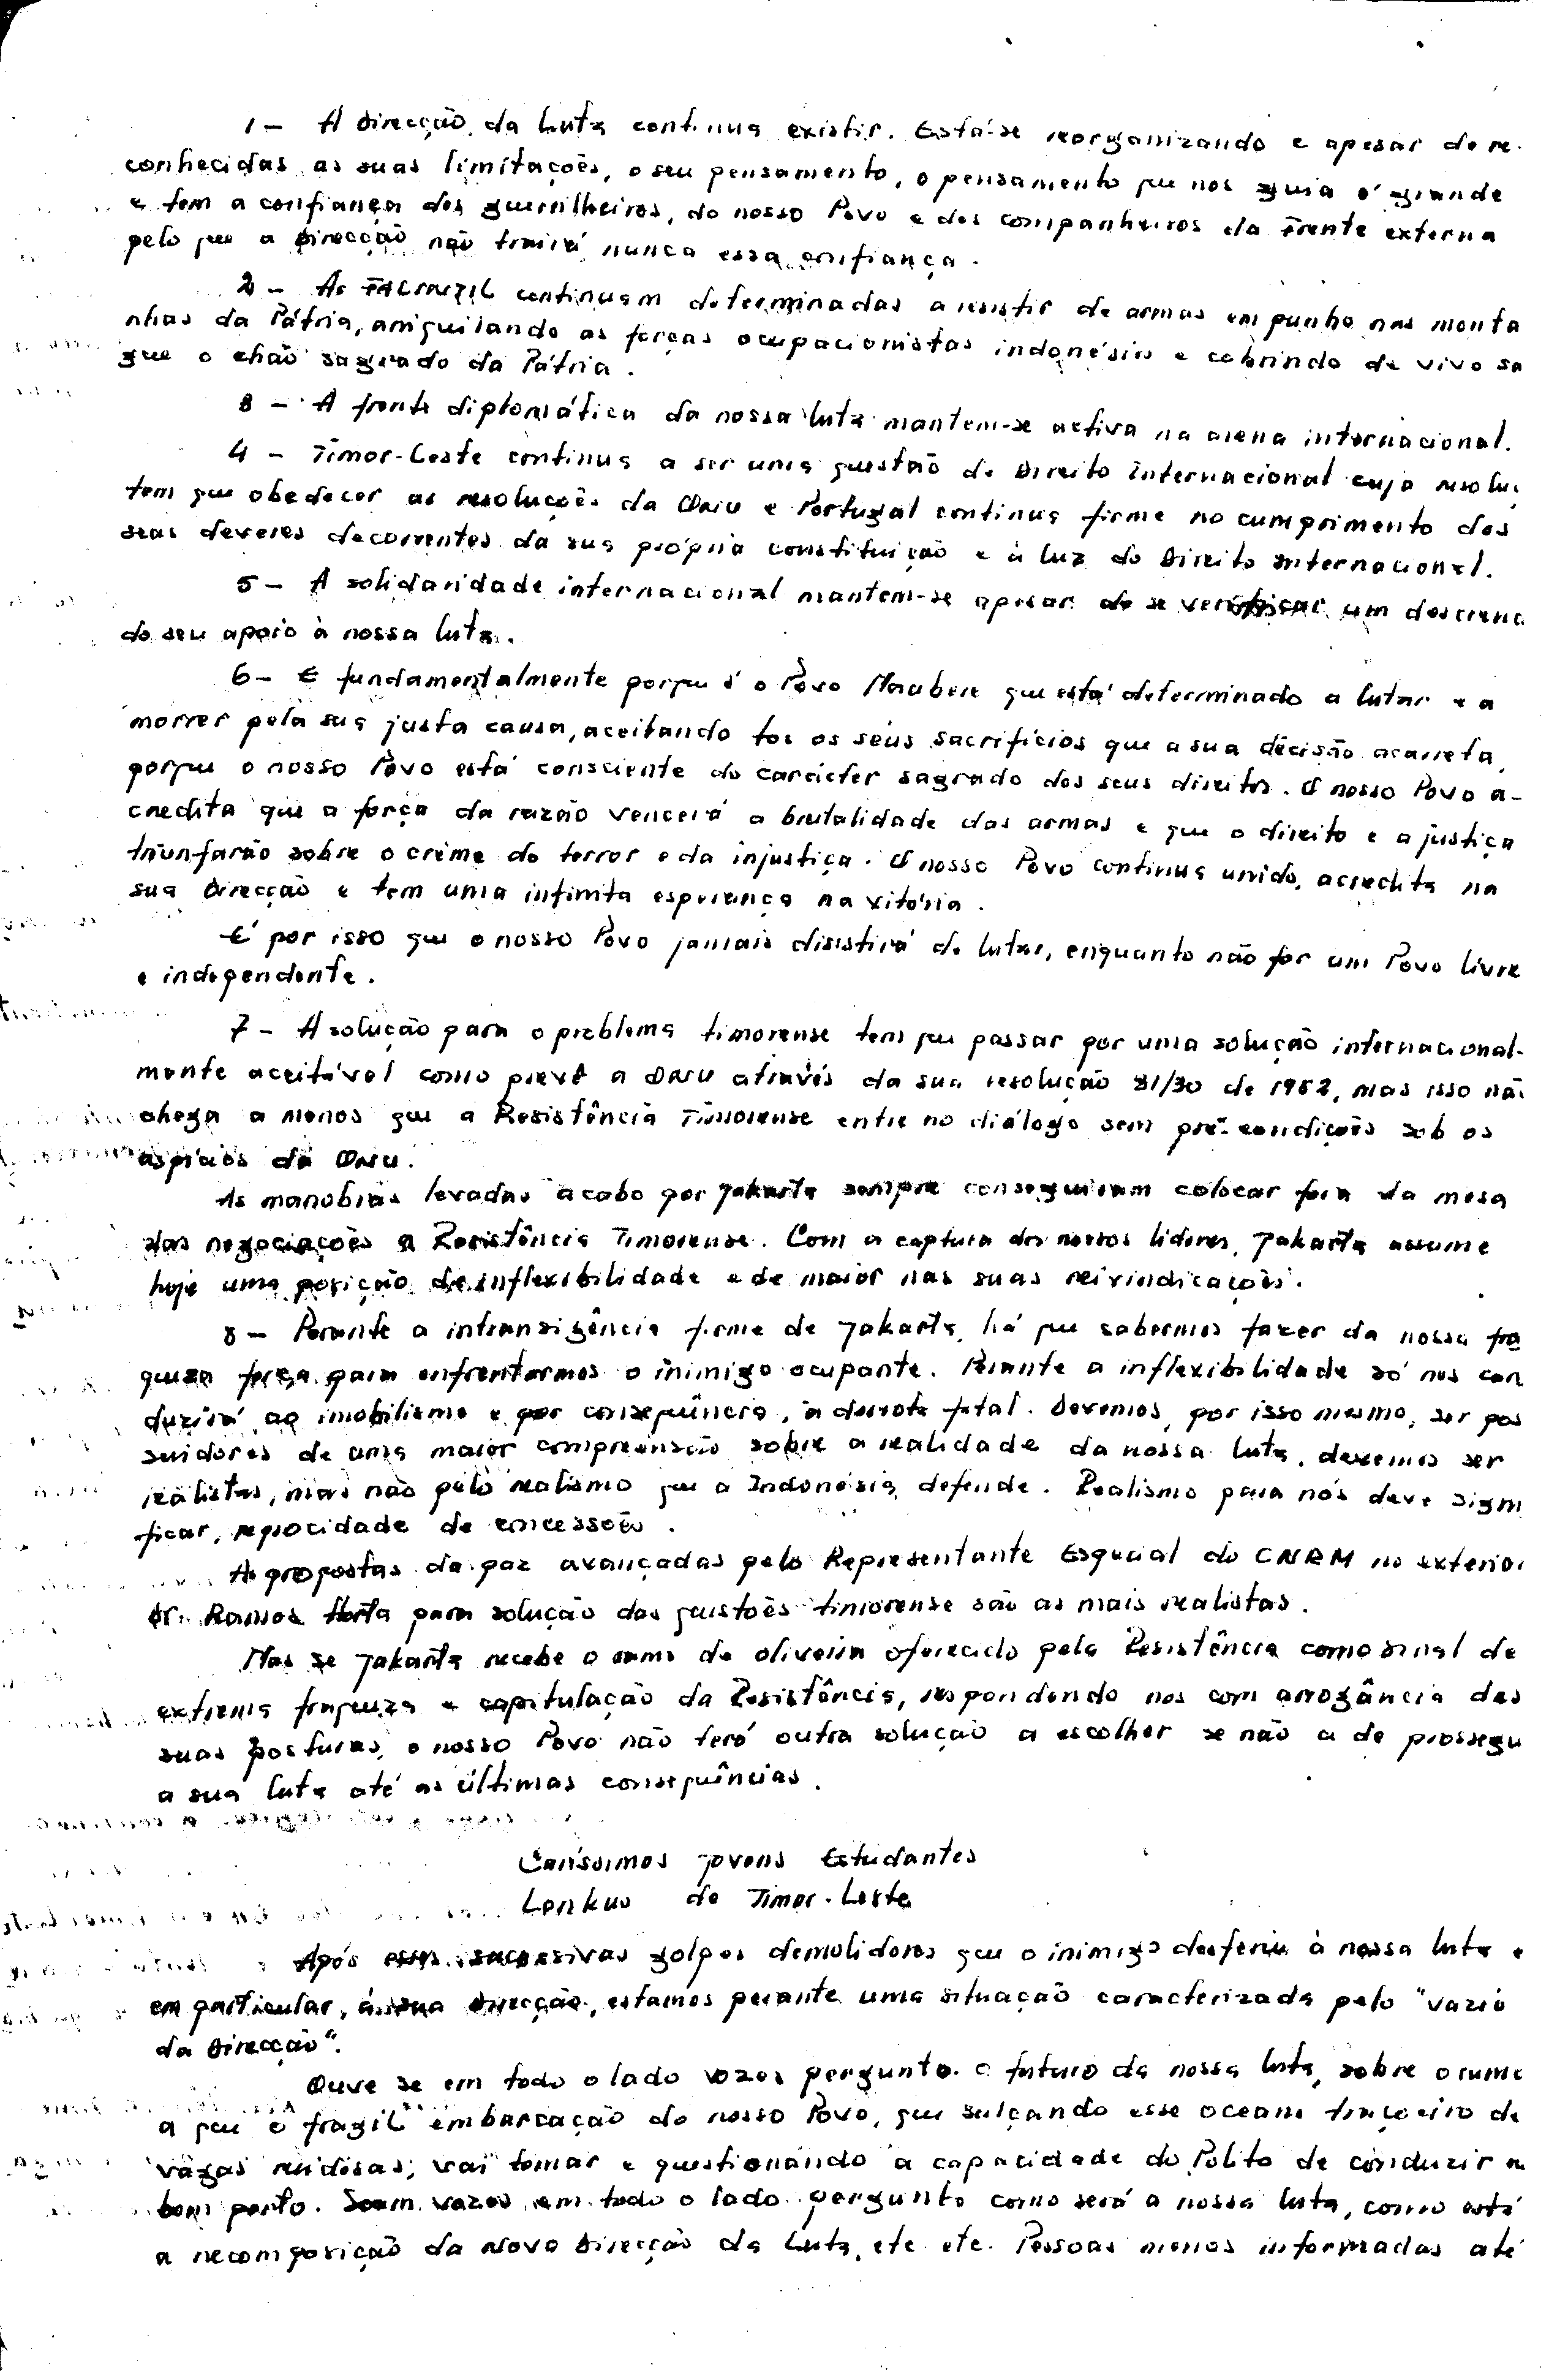 1 - A Direcção da Luta continua existir. Está-se reorganizando e apesar de re-
conhecidas as suas limitações, o seu pensamento, o pensamento que nos guia é grande
e tem a confiança dos guerrilheiros, do nosso Povo e dos companheiros da Frente externa
pelo que a Direcção não trairá nunca essa confiança.
2 - As FALINTIL continuam determinadas a resistir de armas em punho nas monta
nhas da Pátria, aniquilando as forças ocupacionistas indonésias e cobrindo de vivo sa
gue o chão sagrado da Pátria.
3 - A frente diplomática da nossa luta mantem-se activa na arena internacional.
4 - Timor-Leste continua a ser uma questão de Direito Internacional cuja resolu
tem que obedecer as resoluções da ONU e Portugal continua firme no cumprimento dos
seus deveres decorrentes da sua própria constituição e à luz do Direito Internacional.
5 - A solidariedade internacional mantem-se apesar de se verificar um descrenc
do seu apoio à nossa luta.
6 - E fundamentalmente porque é o Povo Maubere que está determinado a lutar e a
morrer pela sua justa causa, aceitando tos os seus sacrifícios que a sua decisão acarreta,
porque o nosso Povo está consciente do carácter sagrado dos seus direitos. O nosso Povo a-
credita que a força da razão vencerá a brutalidade das armas e que o direito e a justiça
triunfarão sobre o crime do terror e da injustiça. O nosso Povo continua unido, acredita na
sua Direcção e tem uma infinita esperança na vitória.
É por isso que o nosso Povo jamais disistirá de lutar, enquanto não for um Povo livre
e independente.
7 - A solução para o problema timorense tem que passar por uma solução internacional-
mente aceitável como prevê a ONU através da sua resolução 31/30 de 1982, mas isso não
chega a menos que a Resistência Timorense entre no diálogo sem pré-condições sob os
aspícios da ONU.
As manobras levadas acabo por Jakarta sempre conseguiram colocar fora da mesa
das negociações a Resistência Timorense. Com a captura dos nossos líderes, Jakarta assume
hoje uma posição de inflexibilidade e de maior nas suas reivindicações.
8 - Perante a intransigência firme de Jakarta, há que sabermos fazer da nossa fra
queza força para enfrentarmos o inimigo ocupante. Perante a inflexibilidade só nos con
duzirá ao imobilismo e por consequência, à derrota fatal. Devemos, por isso mesmo, ser pos
suidores de uma maior compreensão sobre a realidade da nossa luta, devemos ser
realistas, mas não pelo realismo que a Indonésia defende. Realismo para nós deve signi
ficar, reprocidade de concessões.
As propostas da paz avançadas pelo Representante Especial do CNRM no exterior
Dr. Ramos Horta para solução das questões timorense são as mais realistas.
Mas se Jakarta recebe o ramo de oliveira oferecido pela Resistência como sinal de
extrema fraqueza e capitulação da Resistência, respondendo nos com arrogância das
suas posturas, o nosso Povo não terá outra solução a escolher se não a de prossegu
a sua luta até as últimas consequências.
Caríssimos Jovens Estudantes
Lorikus de Timor-Leste
Após sucessivas golpes demolidores que o inimigo desferiu à nossa luta e
em particular, à sua Direcção, estamos perante uma situação caracterizada pelo "vazio
da Direcção".
Ouve se em todo o lado vozes pergunto o futuro da nossa luta, sobre o rumo
a que o fragil embarcação do nosso Povo, que sulcando esse oceano traiçoeiro de
vagas revidosas, vai tomar e questionando a capacidade do Polito de conduzir a
bom porto. Soam vozes em todo o lado pergunto como será a nossa luta, como está
a recomposição da Nova Direcção da Luta, etc etc. Pessoas menos informadas até